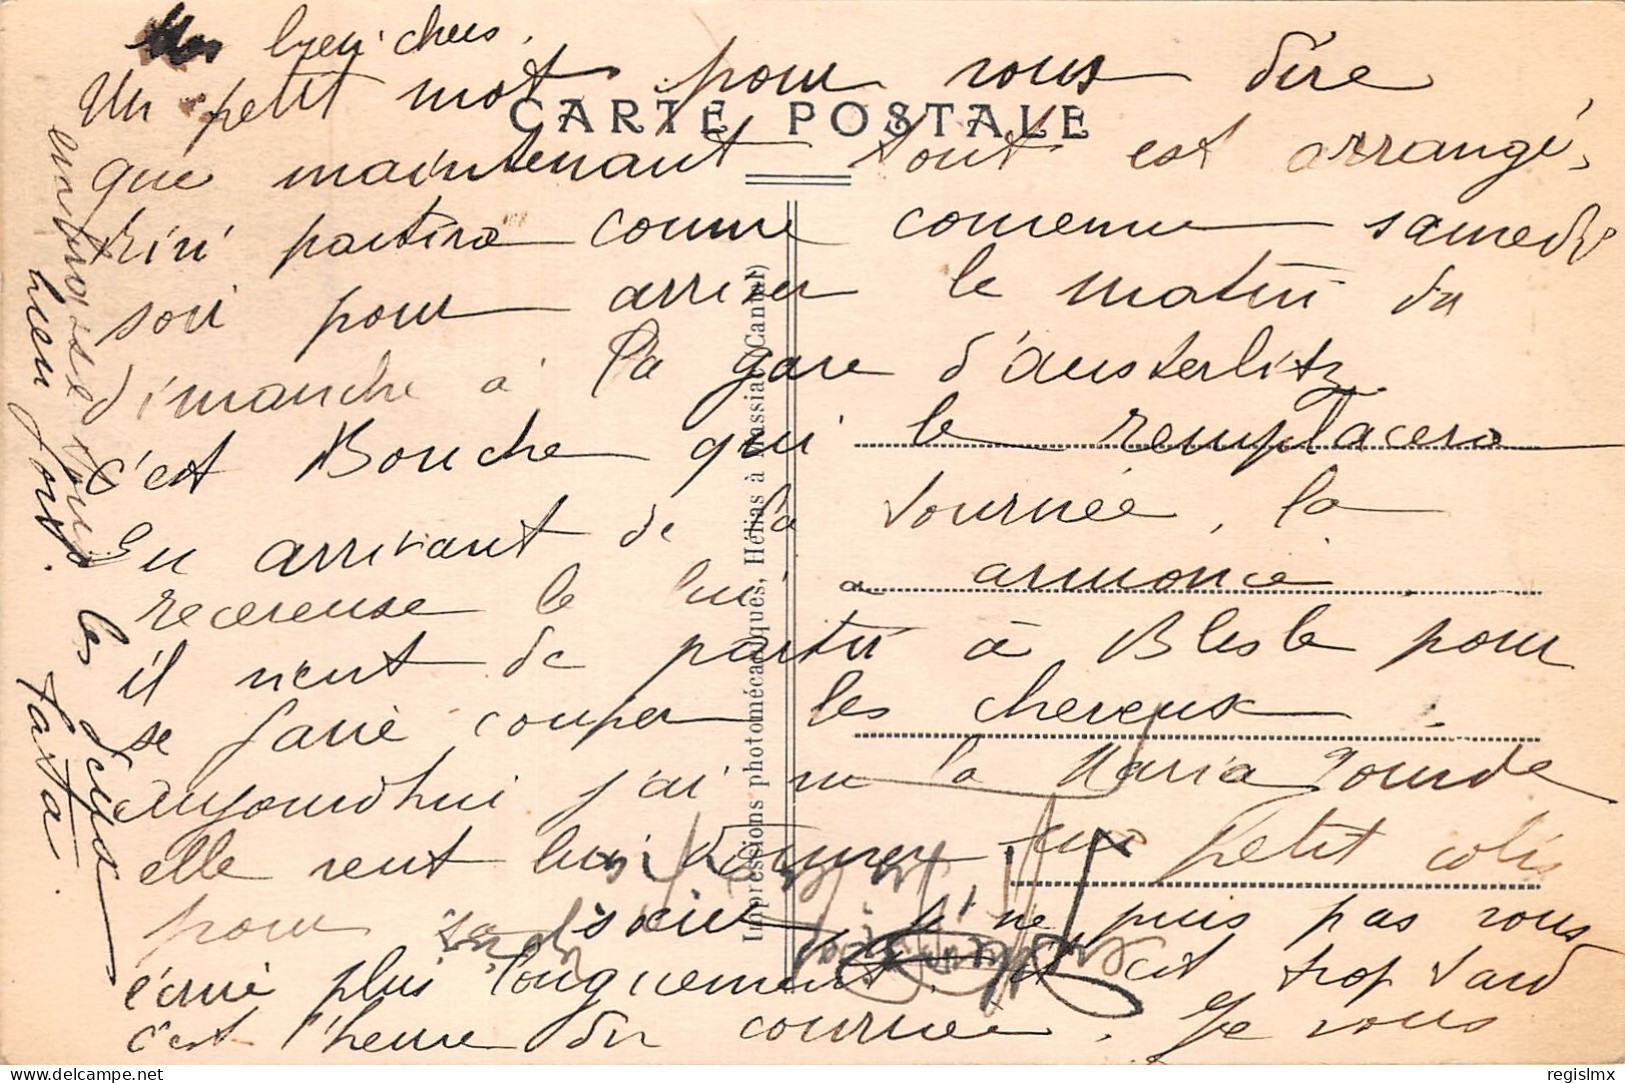 Mes bien chers,
Un petit mot pour vous dire
CARTE POSTALE
que maintenant tout est arrangé,
Kiki partira comme convenu samedi
soir pour arriver le matin du
dimanche à la gare d'austerlitz
c'est Bouche qui le remplacera
En arrivant de la tournée, la
receveuse le lui a annoncé
il vient de partir à Blesle pour
se faire couper les cheveux
aujourd'hui j'ai vu la Maria Gourde
elle veut lui donner un petit colis
pour sa sœur, je ne puis pas vous
écrire plus longuement, il est trop tard
c'est l'heure du courrier. Je vous
embrasse tous les deux
bien fort.
Tata.
Impressions photomécaniques, Hélias à Massiac (Cantal)
regislmx